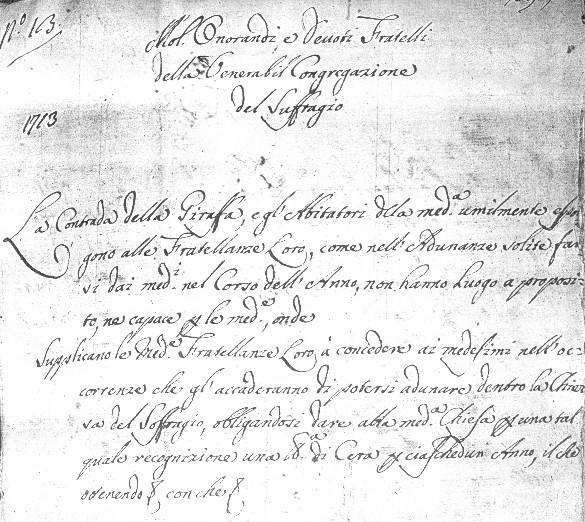 N.º 163.
Mol. Onorandi, e Devoti Fratelli
della Venerabil Congregazione
del Suffragio
1713
La Contrada della Giraffa, e gl' Abitatori dela med.ª umilmente espon
gono alle Fratellanze Loro, come nell' Adunanze solite far
si dai med.i nel Corso dell' Anno, non hanno luogo a proposi
to, ne capace p le med.e, onde
Supplicano le Med.e Fratellanze Loro, à concedere ai medesimi nell' oc:
correnze che gl' accaderanno di potersi adunare dentro la Chie
sa del Soffragio, obligandosi dare alla med.ª Chiesa p una tal
quale recognizione una lb.ª di Cera p ciaschedun Anno, il che
ottenendo &, con che &